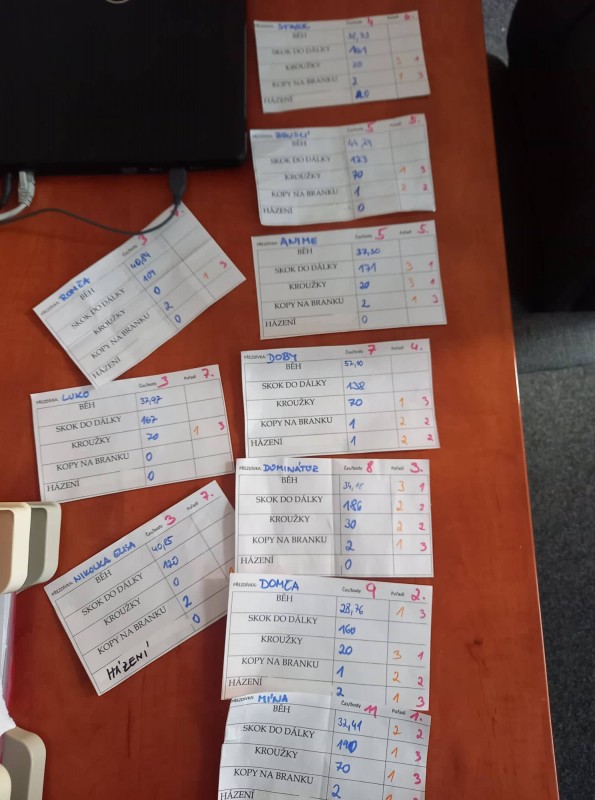 PŘEZDÍVKA STARK Čas/body 4 Pořadí 6.
BĚH
SKOK DO DÁLKY 161
KROUŽKY 20 3 1
KOPY NA BRANKU 2 1 3
HÁZENÍ 0
PŘEZDÍVKA Čas/body 5 Pořadí 5.
BĚH 44,29
SKOK DO DÁLKY 123
KROUŽKY 70 1 3
KOPY NA BRANKU 1 2 2
HÁZENÍ 0
PŘEZDÍVKA ANIME Čas/body 5 Pořadí 5.
BĚH 37,30
SKOK DO DÁLKY 171 3 1
KROUŽKY 20 3 1
KOPY NA BRANKU 2 1 3
HÁZENÍ 0
PŘEZDÍVKA RONČA Čas/body 3 7.
BĚH 40,84
SKOK DO DÁLKY 109
KROUŽKY 0
KOPY NA BRANKU 2 1 3
HÁZENÍ 0
PŘEZDÍVKA DOBY Čas/body 7 Pořadí 4.
BĚH 52,10
SKOK DO DÁLKY 138
KROUŽKY 70 1 3
KOPY NA BRANKU 1 2 2
HÁZENÍ 1 2 2
PŘEZDÍVKA LUKO Čas/body 3 Pořadí 7.
BĚH 37,97
SKOK DO DÁLKY 167
KROUŽKY 70 1 3
KOPY NA BRANKU 0
HÁZENÍ 0
PŘEZDÍVKA DOMINÁTOR Čas/body 8 Pořadí 3.
BĚH 34,15 3 1
SKOK DO DÁLKY 186 2 2
KROUŽKY 30 2 2
KOPY NA BRANKU 2 1 3
HÁZENÍ 0
PŘEZDÍVKA NIKOLKA ELISA Čas/body 3 Pořadí 7.
BĚH 40,85
SKOK DO DÁLKY 120
KROUŽKY 0
KOPY NA BRANKU 2
HÁZENÍ 0
PŘEZDÍVKA DOMČA Čas/body 9 Pořadí 2.
BĚH 28,76 1 3
SKOK DO DÁLKY 160
KROUŽKY 20 3 1
KOPY NA BRANKU 1 2 2
HÁZENÍ 2 1 3
PŘEZDÍVKA MÍNA Čas/body 11 Pořadí 1.
BĚH 32,41 2 2
SKOK DO DÁLKY 190 1 3
KROUŽKY 70 1 3
KOPY NA BRANKU 2 1 3